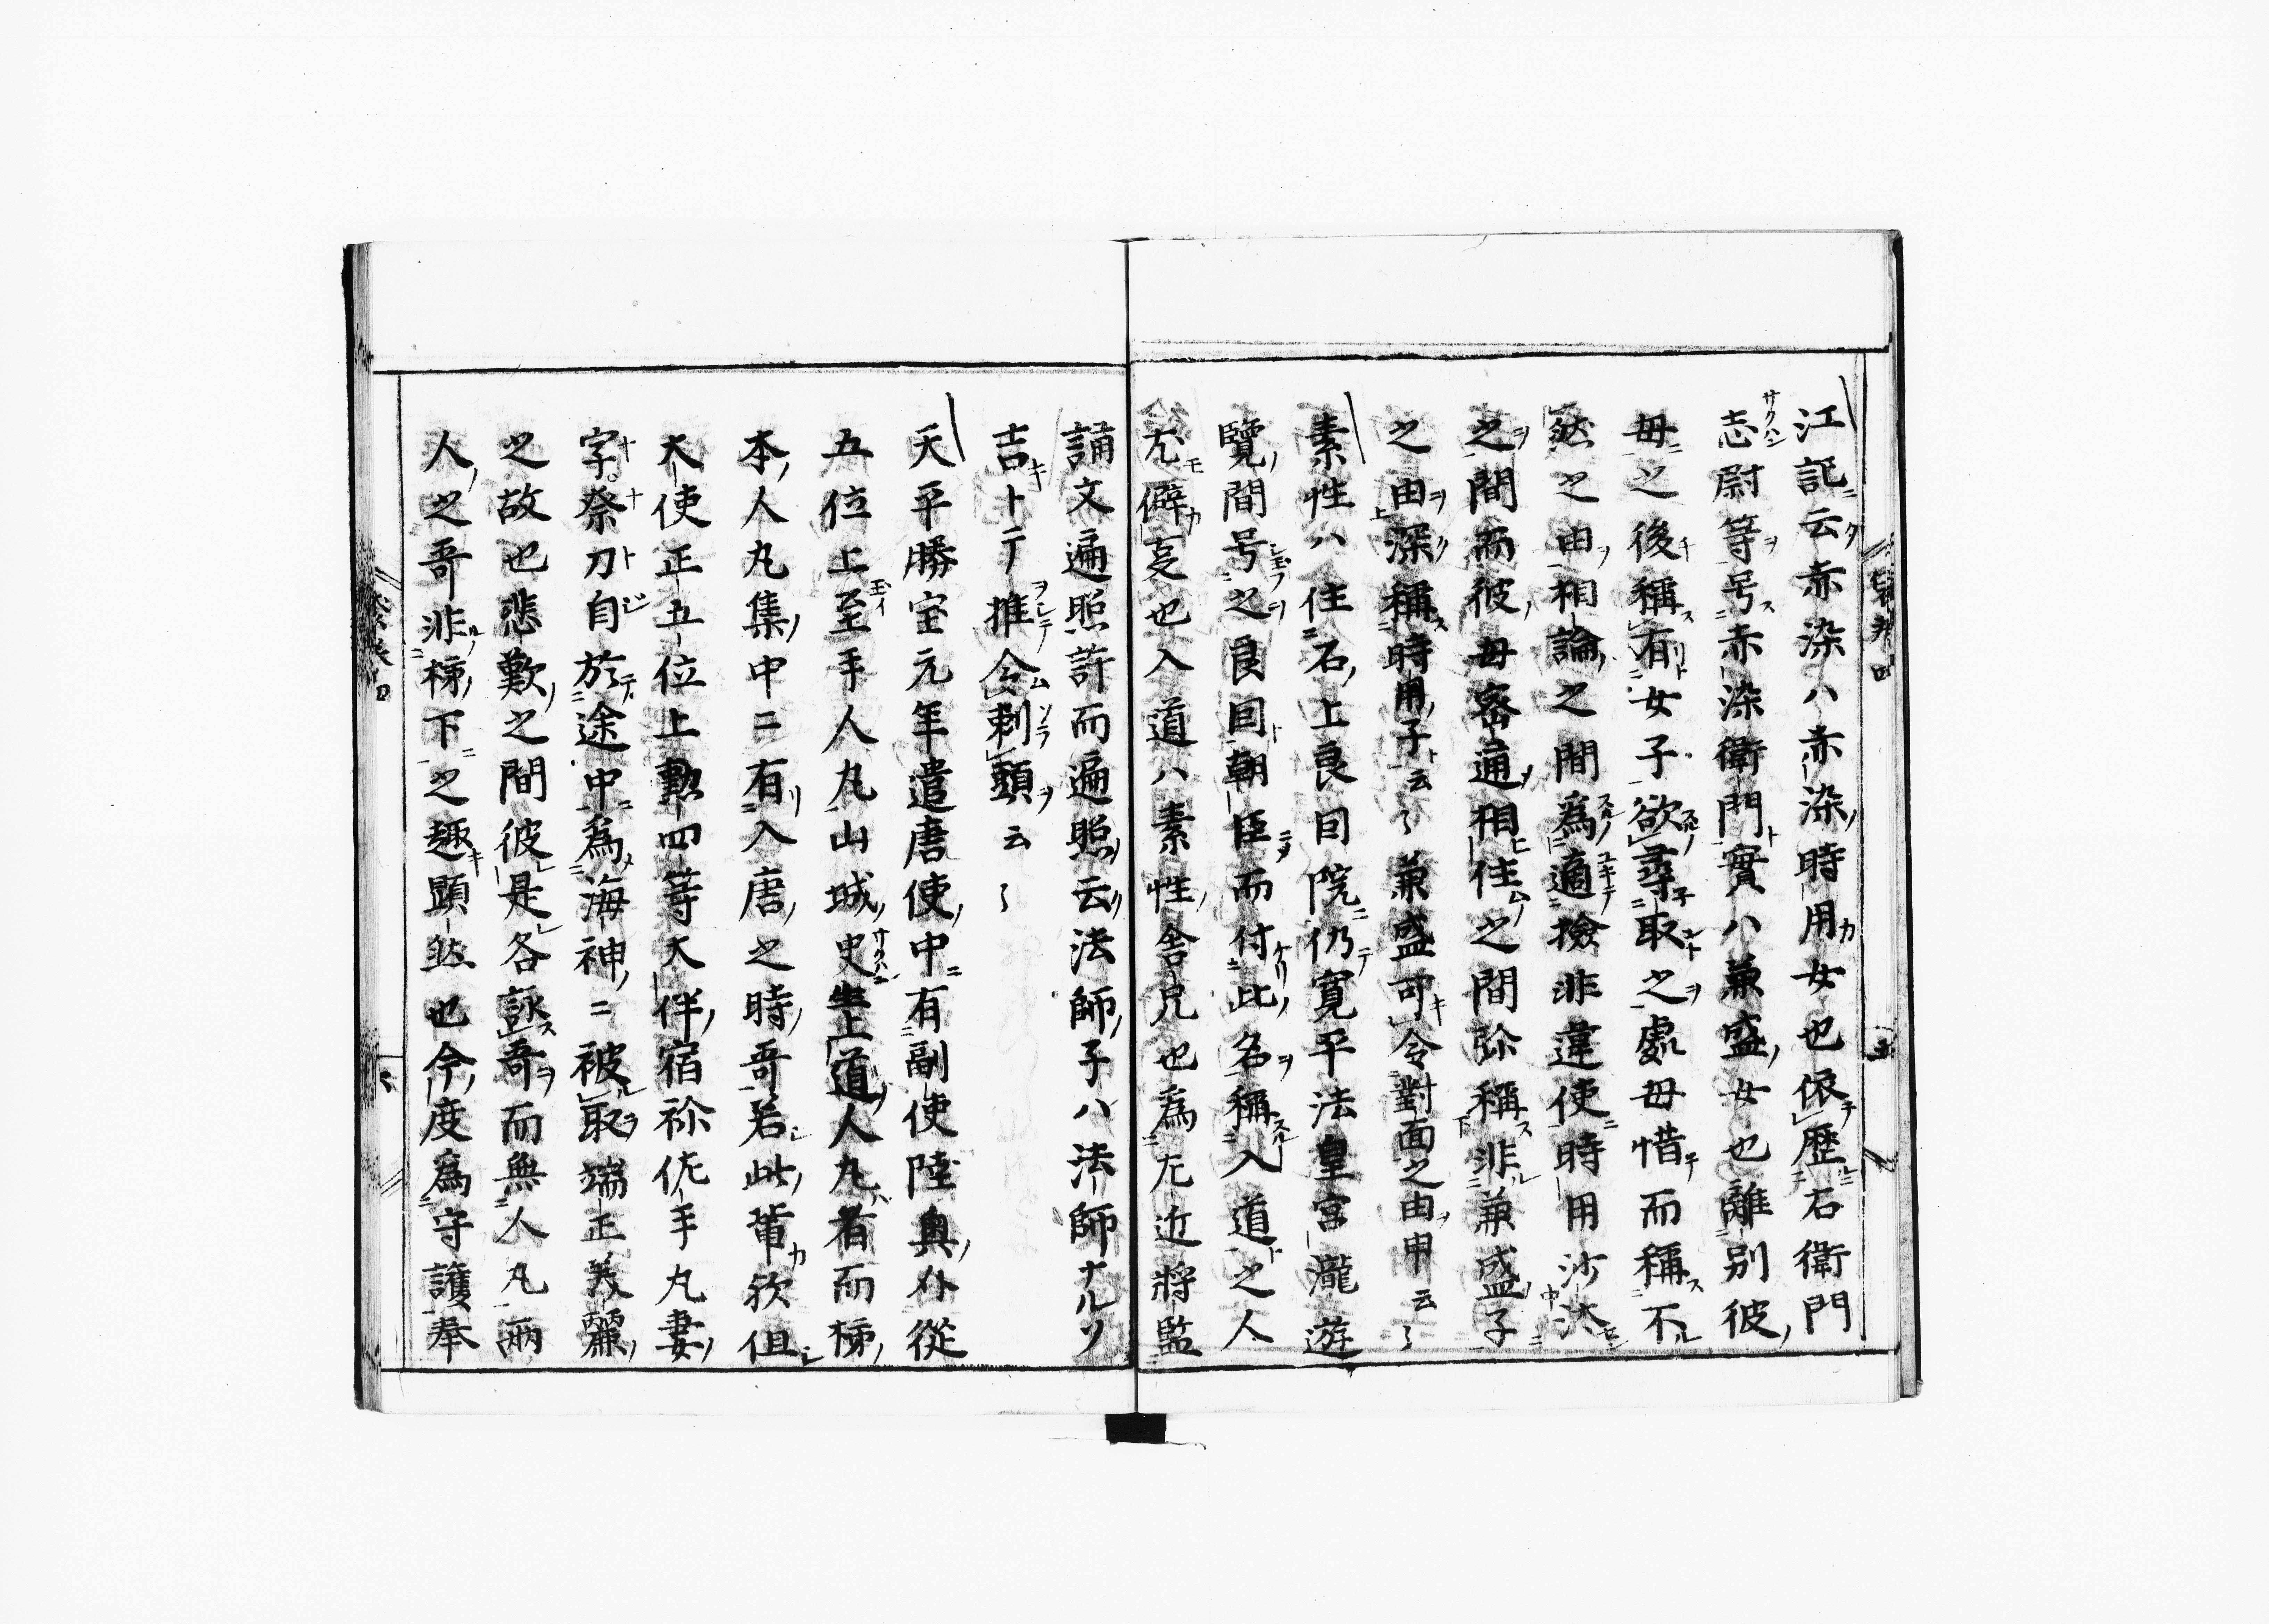 江記云赤染ハ赤染時用女也依歷右衛門
志尉等号赤染衛門實ハ兼盛女也離別彼
母之後稱有女子欲尋取之處母惜而稱不
然之由相論之間為適撿非違使時用沙汰
之間而彼母密通相住之間弥稱非兼盛子
之由深稱時用子云〻兼盛可令對面之由申云〻
素性ハ住石上良因院仍寛平法皇宮瀧遊
覽間号之良因朝臣而付此名稱入道之人
尤僻叓也入道ハ素性舎兄也為左近将監
誦文遍照許而遍照云法師子ハ法師ナルソ
吉トテ推令剃頭云〻
天平勝宝元年遣唐使中有副使陸奥介從
五位上至手人丸山城史生上道人丸者而柿
本人丸集中ニ有入唐之時哥若此輩欤但
大使正五位上勲四等大伴宿祢佐手丸妻
字祭刀自於途中為海神ニ被取端正美麗
之故也悲歎之間彼是各詠哥而無人丸両
人之哥非柿下之趣顕然也今度為守護奉